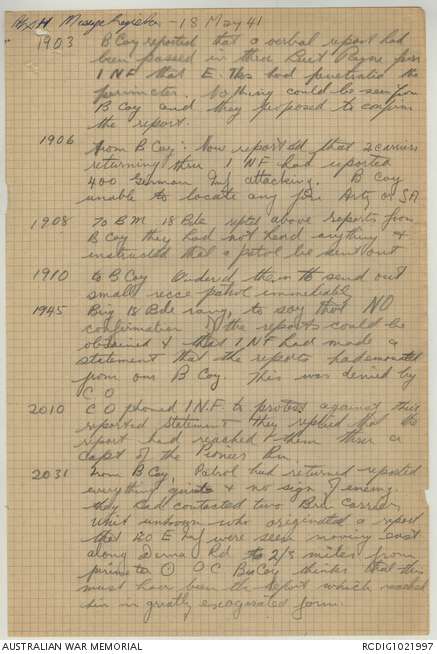 18 May 41
1903 B Coy reported that a verbal report had
been passed in thru Lieut Payne from
1 NF that E. This had penetrated the
perimeter. Nothing could be seen from
B Coy and they proposed to confirm
the report.
1906 from B Coy: Now reported that 2 carriers
returning thru 1 NF had reported
400 German Inf attacking. B Coy
unable to locate any fire Arty or SA
1908 To BM 18 Bde above reports from
B Coy they had not heard anything &
instructed that a patrol be sent out
1910 to B Coy Ordered them to send out
small recce patrol immediately
1945 Brig 18 Bde rang, to say that NO
confirmation of the reports could be
obtained & that 1 NF had made a
statement that the reports had emanated
from our B Coy This was denied by
C O
2010 C O phoned 1 N.F. to protest against this
reported statement they replied that the
report had reached them thru a
Capt of the Pioneer Bn.
2031 from B Coy, Patrol had returned reported
everything quiet & no sign of enemy.
they had contacted two Bren Carriers
Unit unknown who originated a report
that 20 E Inf were seen moving east
along Derna Rd to 2/3 miles from
perimeter O C B Coy thinks that this
must have been the report which reached
him in greatly exaggerated form.
AUSTRALIAN WAR MEMORIAL
RCDIG1021997